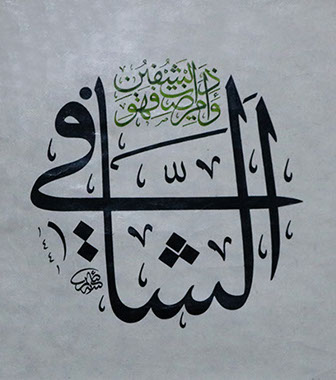 وإذا مرضت فهو يشفين
الشافي
١٤٤١